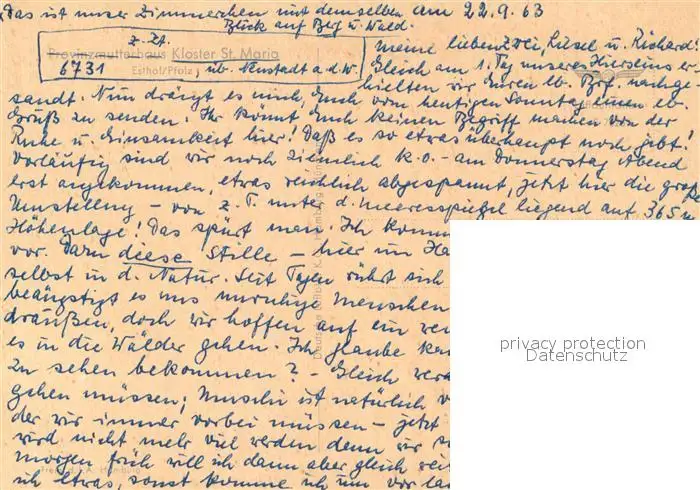 Das ist unser Zimmerchen mit demselben am 22.9.63
Blick auf Berg u. Wald.
z. Zt.
Provinzmutterhaus Kloster St. Maria
Esthal/Pfalz,
6731 üb. Neustadt a. d. W.
Meine lieben Zwei, Liesel u. Richard!
Gleich am 1. Tag unseres Hierseins er-
hielten wir Euren lb. Brf. nachge-
sandt. Nun drängt es mich, Euch vom heutigen Sonntag einen lb.
Gruß zu senden. Ihr könnt Euch keinen Begriff machen von der
Ruhe u. Einsamkeit hier! Daß es so etwas überhaupt noch gibt!
Vorläufig sind wir noch ziemlich k.o. - am Donnerstag Abend
erst angekommen, etwas reichlich abgespannt, jetzt hier die große
Umstellung - von z. T. unter d. Meeresspiegel liegend auf 365 m
Höhenlage! Das spürt man. Ich komm
vor. Dazu diese Stille - hier im Ha
selbst in d. Natur. Seit Tagen rührt sich
beängstigt es uns unruhige Menschen
draußen, doch wir hoffen auf ein
es in die Wälder gehen. Ich glaube
zu sehen bekommen? - Gleich
gehen müssen; Muschi ist natürlich
der wir immer vorbei müssen - jetzt
wird nicht mehr viel werden denn wir
morgen früh will ich dann aber gleich
ich etwas, sonst komme ich um vor
privacy protection
Datenschutz